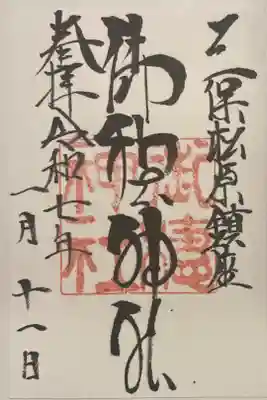 三保松原鎮座
御穂神社
奉拝 令和七年
一月 十一日